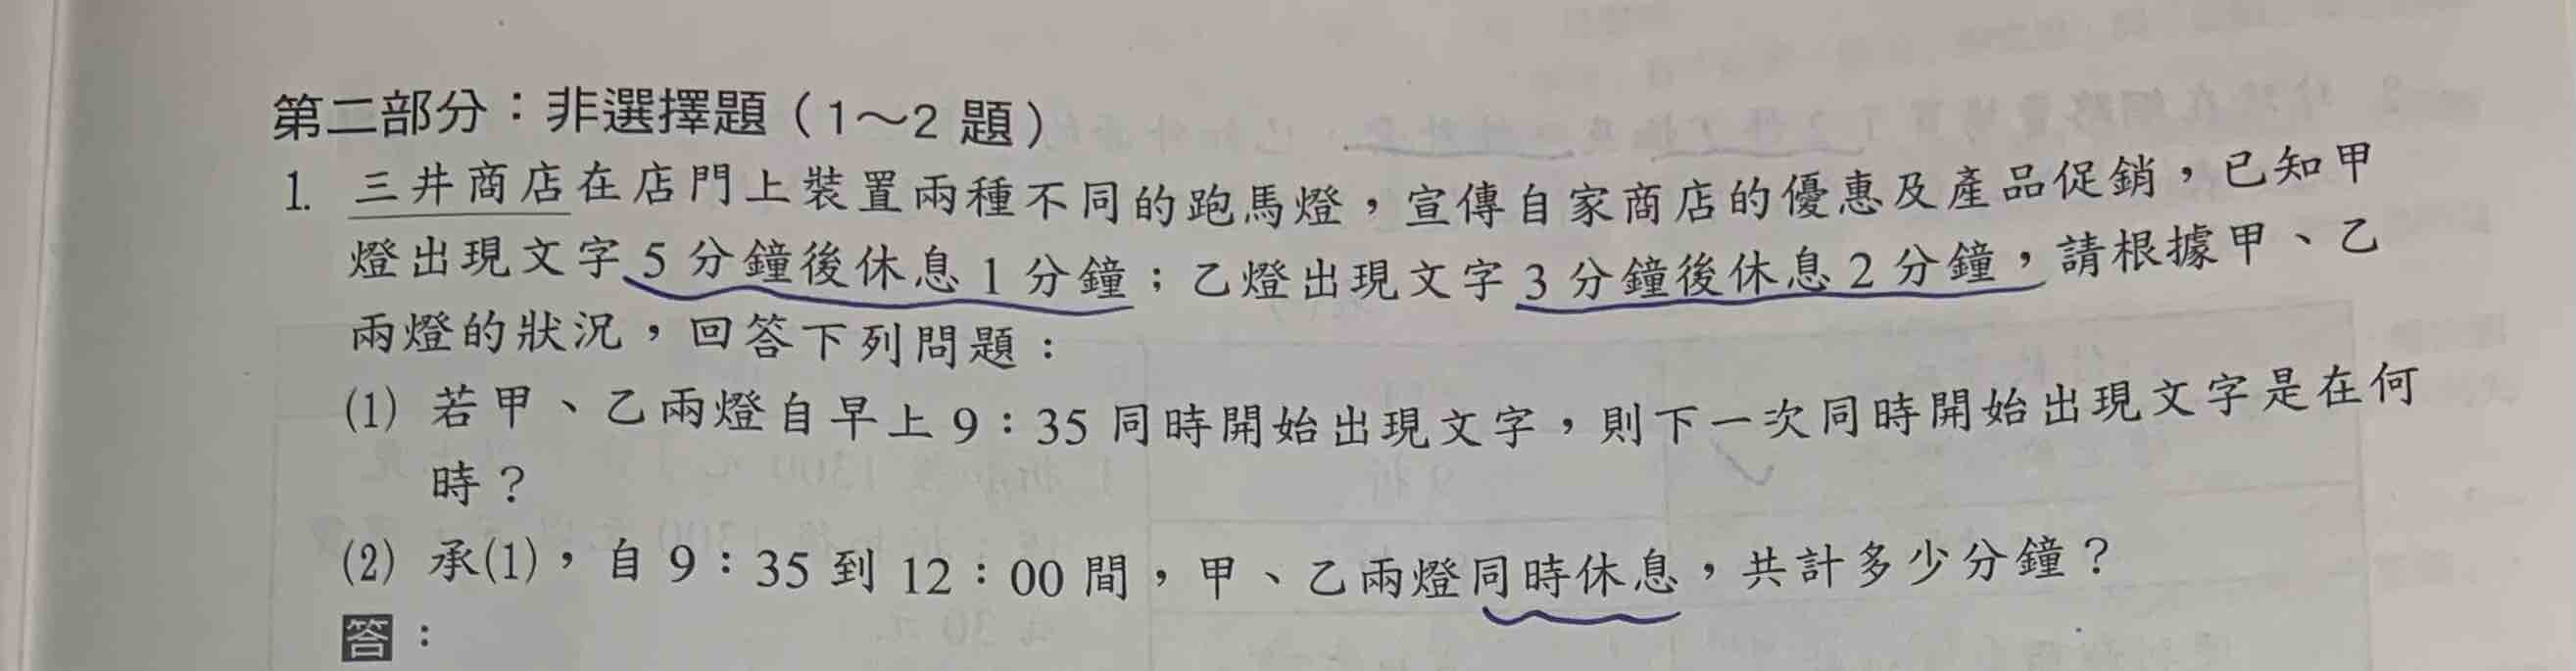 第二部分：非選擇題（1～2 題）
1. 三井商店在店門上裝置兩種不同的跑馬燈，宣傳自家商店的優惠及產品促銷，已知甲
燈出現文字 5 分鐘後休息 1 分鐘；乙燈出現文字 3 分鐘後休息 2 分鐘，請根據甲、乙
兩燈的狀況，回答下列問題：
(1) 若甲、乙兩燈自早上 9：35 同時開始出現文字，則下一次同時開始出現文字是在何
時？
(2) 承(1)，自 9：35 到 12：00 間，甲、乙兩燈同時休息，共計多少分鐘？
答：